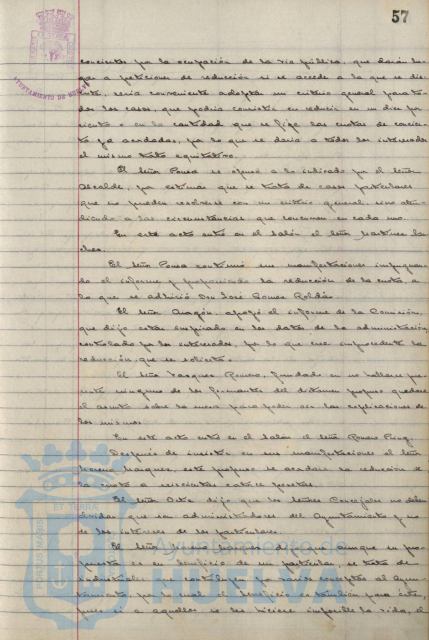 57
AYUNTAMIENTO DE HUELVA
conciertos por la ocupación de la vía pública, que darán lu-
gar a peticiones de reducción si se accede a la que se dis-
cute, sería conveniente adoptar un criterio general para to-
dos los casos, que podría consistir en reducir en un diez por
ciento o en la cantidad que se fije las cuotas de concier-
to ya acordadas, por lo que se daría a todos los interesados
el mismo trato equitativo.
El Señor Ponsa se opuso a lo indicado por el Señor
Alcalde, por estimar que se trata de casos particulares
que no pueden resolverse con un criterio general, sino aten-
diendo a las circunstancias que concurran en cada uno.
En este acto entró en el Salón el Señor Martínez
El Señor Ponsa continuó sus manifestaciones impugnan-
do el informe y proponiendo la reducción de la cuota, a
lo que se adhirió Don José Gómez Roldán.
El Señor Aragón, apoyó el informe de la Comisión,
que dijo estar inspirado en los datos de la administración,
controlado por los interesados, por lo que cree improcedente la
reducción, que se solicita.
El Señor Vázquez Romero, fundado en no hallarse pre-
sente ninguno de los firmantes del dictamen propuso quedara
el asunto sobre la mesa para poder oír las explicaciones de
los mismos.
En este acto entró en el Salón el Señor Ponce
Después de insistir en sus manifestaciones el Señor
Moreno Márquez, este propuso se acordara la reducción de
la cuota a seiscientas catorce pesetas.
El Señor dijo que los Señores Concejales no deben
olvidar que son administradores del Ayuntamiento y no
de los intereses de los particulares.
El Señor Moreno Márquez dijo que aunque su pro-
puesta es en beneficio de un particular, se trata de
industriales que contribuyen por varios conceptos al Ayun-
tamiento, por lo cual el beneficio es también para éste,
pues si a aquellos se les hiciere imposible la vida, el
PORTUS MARIS ET TERRAE CUSTODIA
Ayuntamiento de
HUELVA